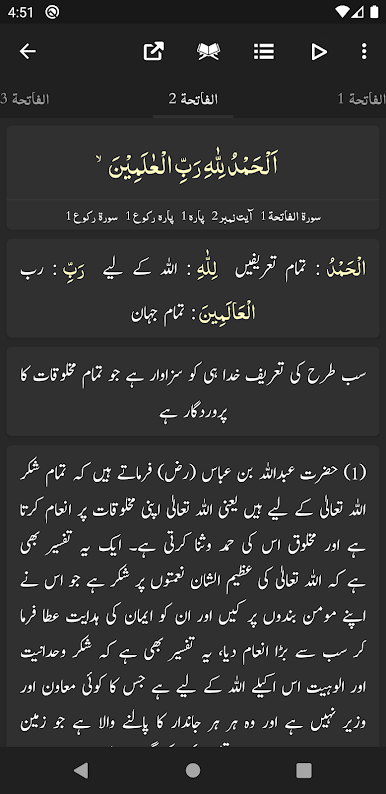 4:51
الفاتحة 1
الفاتحة 2
الفاتحة 3
اَلْحَمْدُ لِلّٰهِ رَبِّ الْعٰلَمِيْنَ ۙ
سورة الفاتحة 1 آیت نمبر 2 پارہ 1 پارہ رکوع 1 سورۃ رکوع 1
الْحَمْدُ : تمام تعریفیں لِلّٰهِ : اللہ کے لیے رَبِّ : رب
الْعَالَمِينَ : تمام جہان
سب طرح کی تعریف خدا ہی کو سزاوار ہے جو تمام مخلوقات کا
پروردگار ہے
(1) حضرت عبداللہ بن عباس (رض) فرماتے ہیں کہ تمام شکر
اللہ تعالٰی کے لیے ہیں یعنی اللہ تعالٰی اپنی مخلوقات پر انعام کرتا
ہے اور مخلوق اس کی حمد وثنا کرتی ہے۔ ایک یہ تفسیر بھی
ہے کہ اللہ تعالٰی کی عظیم الشان نعمتوں پر شکر ہے جو اس نے
اپنے مومن بندوں پر کیں اور ان کو ایمان کی ہدایت عطا فرما
کر سب سے بڑا انعام دیا، یہ تفسیر بھی ہے کہ شکر وحدانیت
اور الوہیت اس اکیلے اللہ کے لیے ہے جس کا کوئی معاون اور
وزیر نہیں ہے اور وہ ہر ہر جاندار کا پالنے والا ہے جو زمین